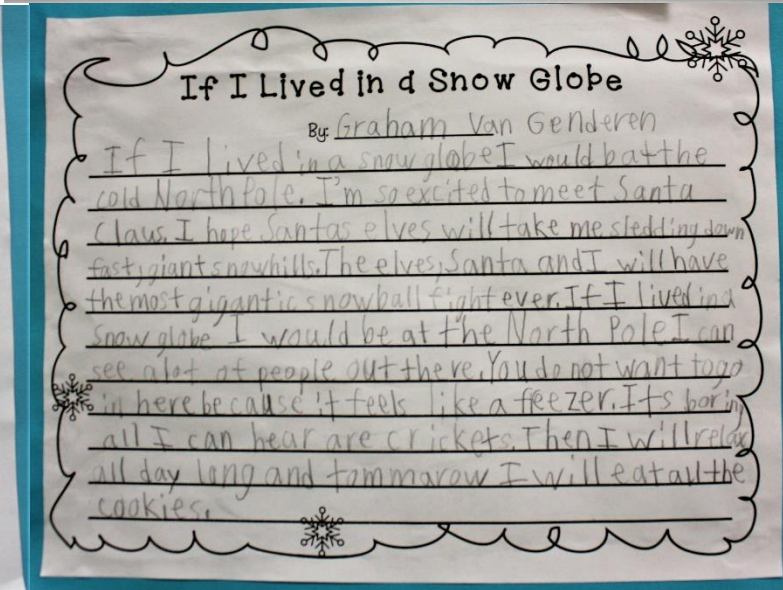 If I Lived in a Snow Globe
By: Graham Van Genderen
If I lived in a snow globe I would b at the
cold North Pole. I'm so excited to meet Santa
Claus. I hope Santas elves will take me sledding down
fast, giant snowhills. The elves, Santa and I will have
the most gigantic snowball fight ever. If I lived in a
snow globe I would be at the North Pole I can
see alot of people out there. You do not want to go
in here because it feels like a feezer. Its boring
all I can hear are crickets. Then I will relax
all day long and tommarow I will eat all the
cookies.